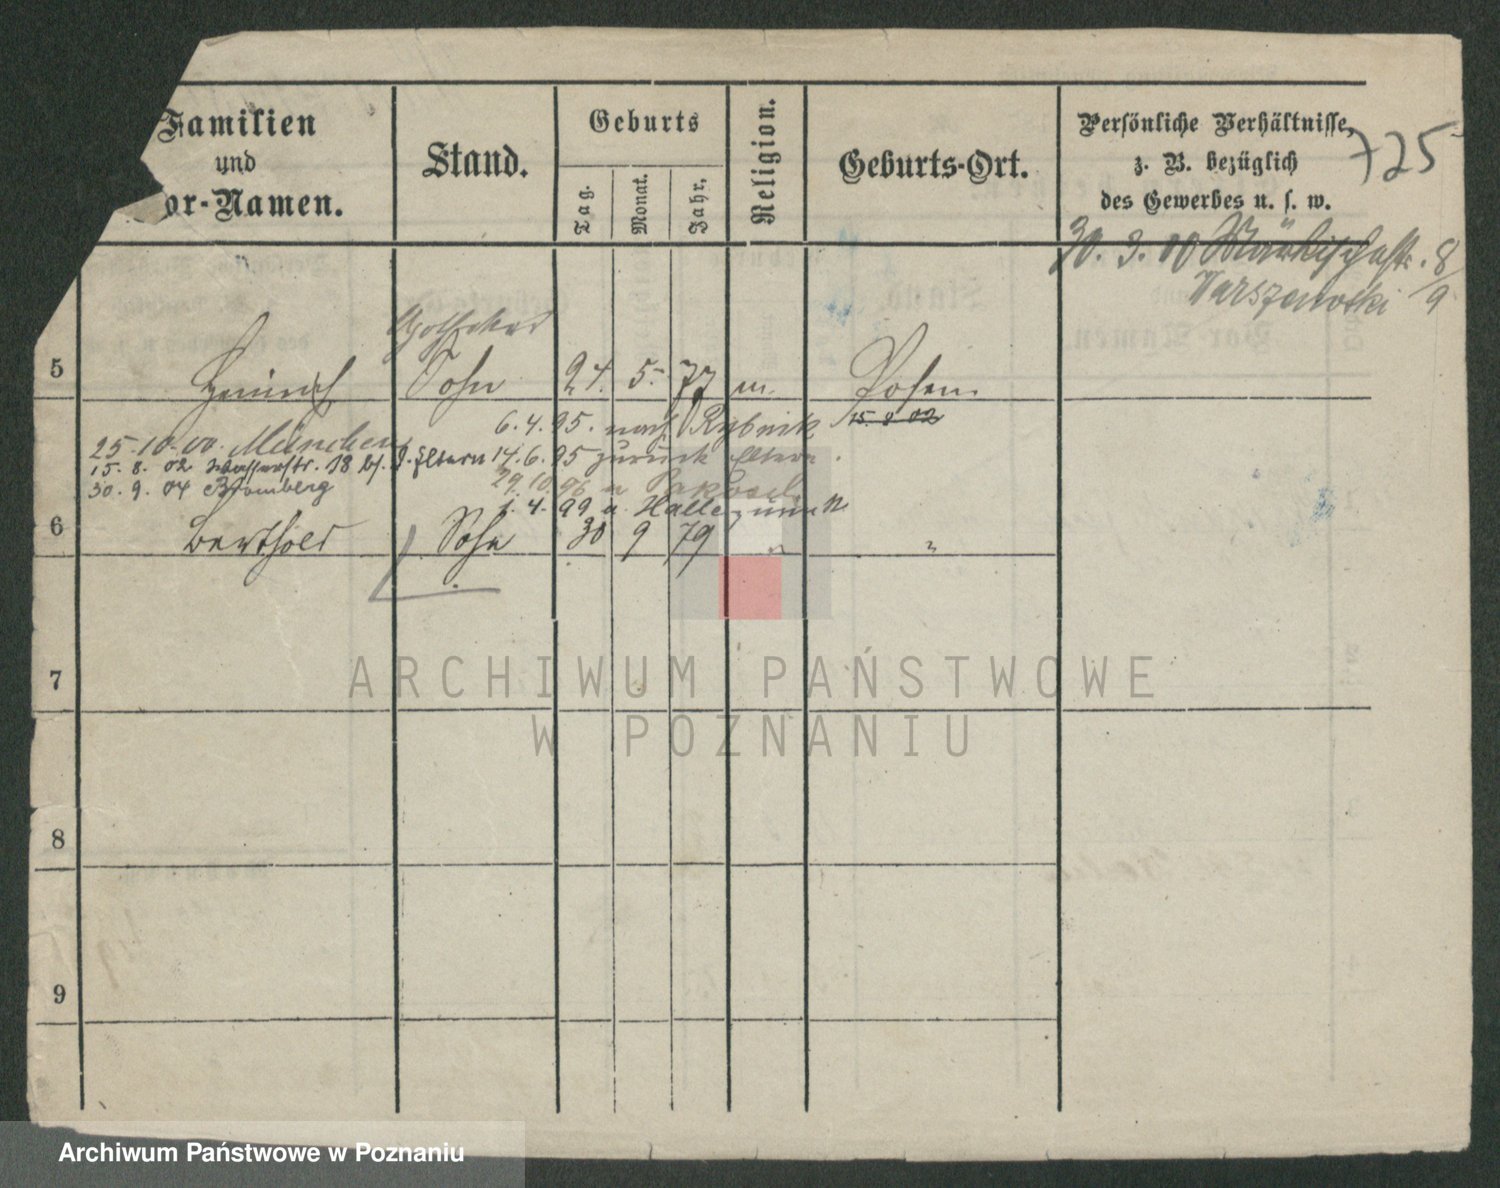 Familien
und
Vor-Namen.
Stand.
Geburts
Tag.
Monat.
Jahr.
Religion.
Geburts-Ort.
Persönliche Verhältnisse,
z. B. bezüglich
des Gewerbes u. s. w.
725
8/9
Warszawski
Apotheker
5 Heinrich Sohn 24. 5. 77 m. Posen
6.4.95. nach Rybnik
15.8.02
25.10.00. München
15.8.02 Wasserstr. 18 Eltern 14.6.95 zurück Eltern.
30.9.04 Bromberg
1.4.99 a. Halle zurück
6 Berthold Sohn 30 9 79 " "
7
8
9
ARCHIWUM PAŃSTWOWE
W POZNANIU
Archiwum Państwowe w Poznaniu